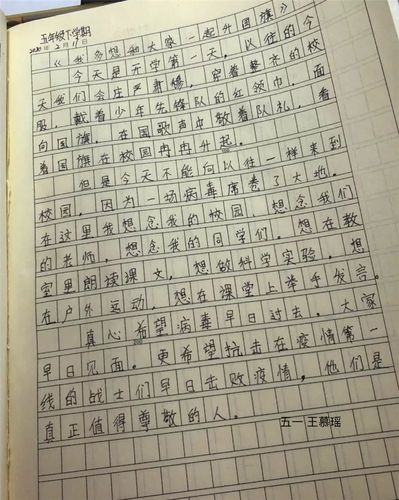 五年级下学期
2020年2月11日
《我多想和大家一起升国旗》
今天是开学第一天，以往的今
天我们会庄严肃穆，穿着整齐的校
服，戴着少年先锋队的红领巾，面
向国旗，在国歌声中敬着队礼，看
着国旗在校园冉冉升起。
但是今天不能向以往一样来到
校园，因为一场病毒席卷了大地。
在这里我想念我的校园，想念我们
的老师，想念我的同学们。想在教
室里朗读课文，想做科学实验，想
在户外运动，想在课堂上举手发言。
真心希望病毒早日过去，大家
早日见面。更希望抗击在疫情第一
线的战士们早日击败疫情，他们是
真正值得尊敬的人。
五一 王慕瑶